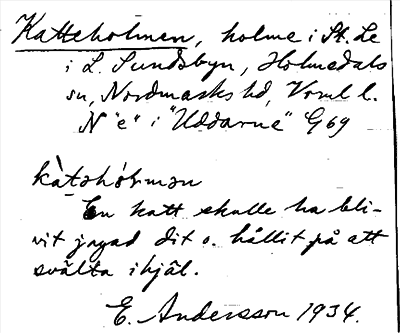 Katteholmen, holme i St. Le
i L. Sundsbyn, Holmedals
sn, Nordmarks hd, Vrml l.
N "e" i "Uddarne" G69
En katt skulle ha bli-
vit jagad dit o. hållit på att
svälta ihjäl.
E. Andersson 1934.